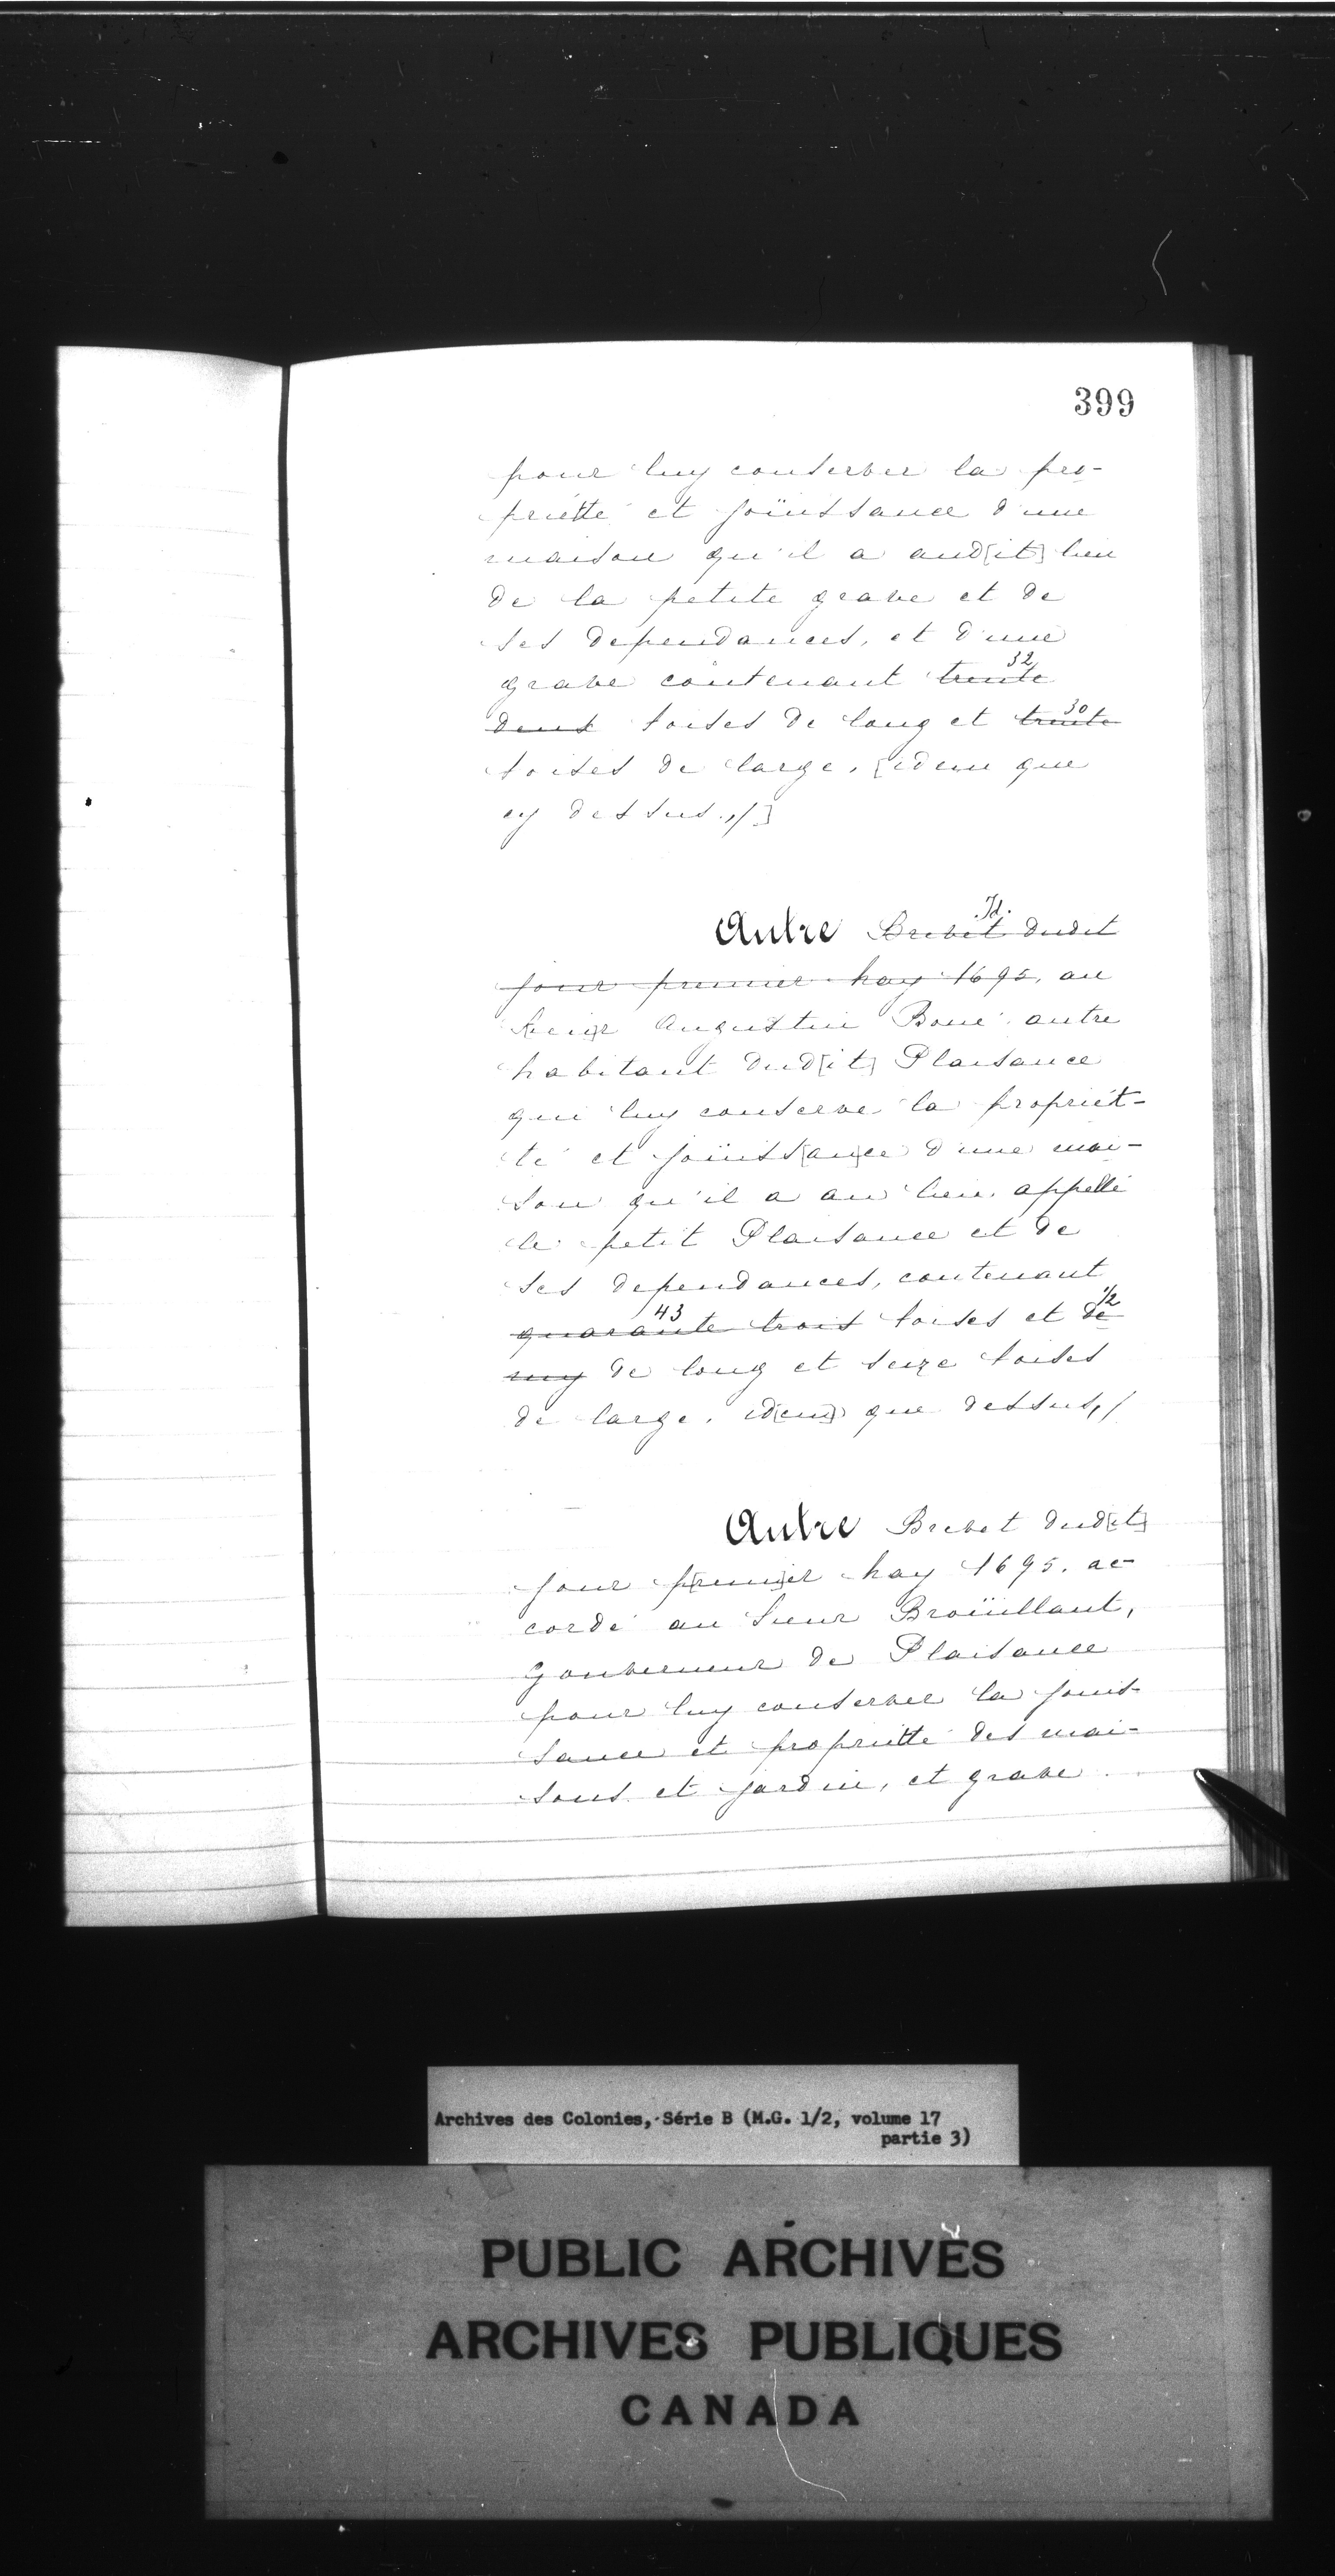 399
pour luy conserver la pro-
priétté et joüissance d'une
maison qu'il a aud[it] lieu
de la petite grave et de
ses dependances, et d'une
32
grave contenant trente
30
deux toises de long et trente
toises de large. [idem que
cy dessus./]
Id.
Autre Brevet dudit
jour premier may 1695, au
Sieur Augustin Boue autre
habitant dud[it] Plaisance
qui luy conserve la propriét-
té et joüiss[an]ce d'une mai-
son qu'il a au lieu appellé
le petit Plaisance et de
ses dependances, contenant
43 1/2
quarante trois toises et de
my de long et seize toises
de large. id[em] que dessus,/
Autre Brevet dud[it]
jour p[rem]ier may 1695. ac-
cordé au Sieur Broüillant,
Gouverneur de Plaisance
pour luy conserver la jouis-
sance et propriétté des mai-
sons et jardin, et grave
Archives des Colonies, Série B (M.G. 1/2, volume 17
partie 3)
PUBLIC ARCHIVES
ARCHIVES PUBLIQUES
CANADA